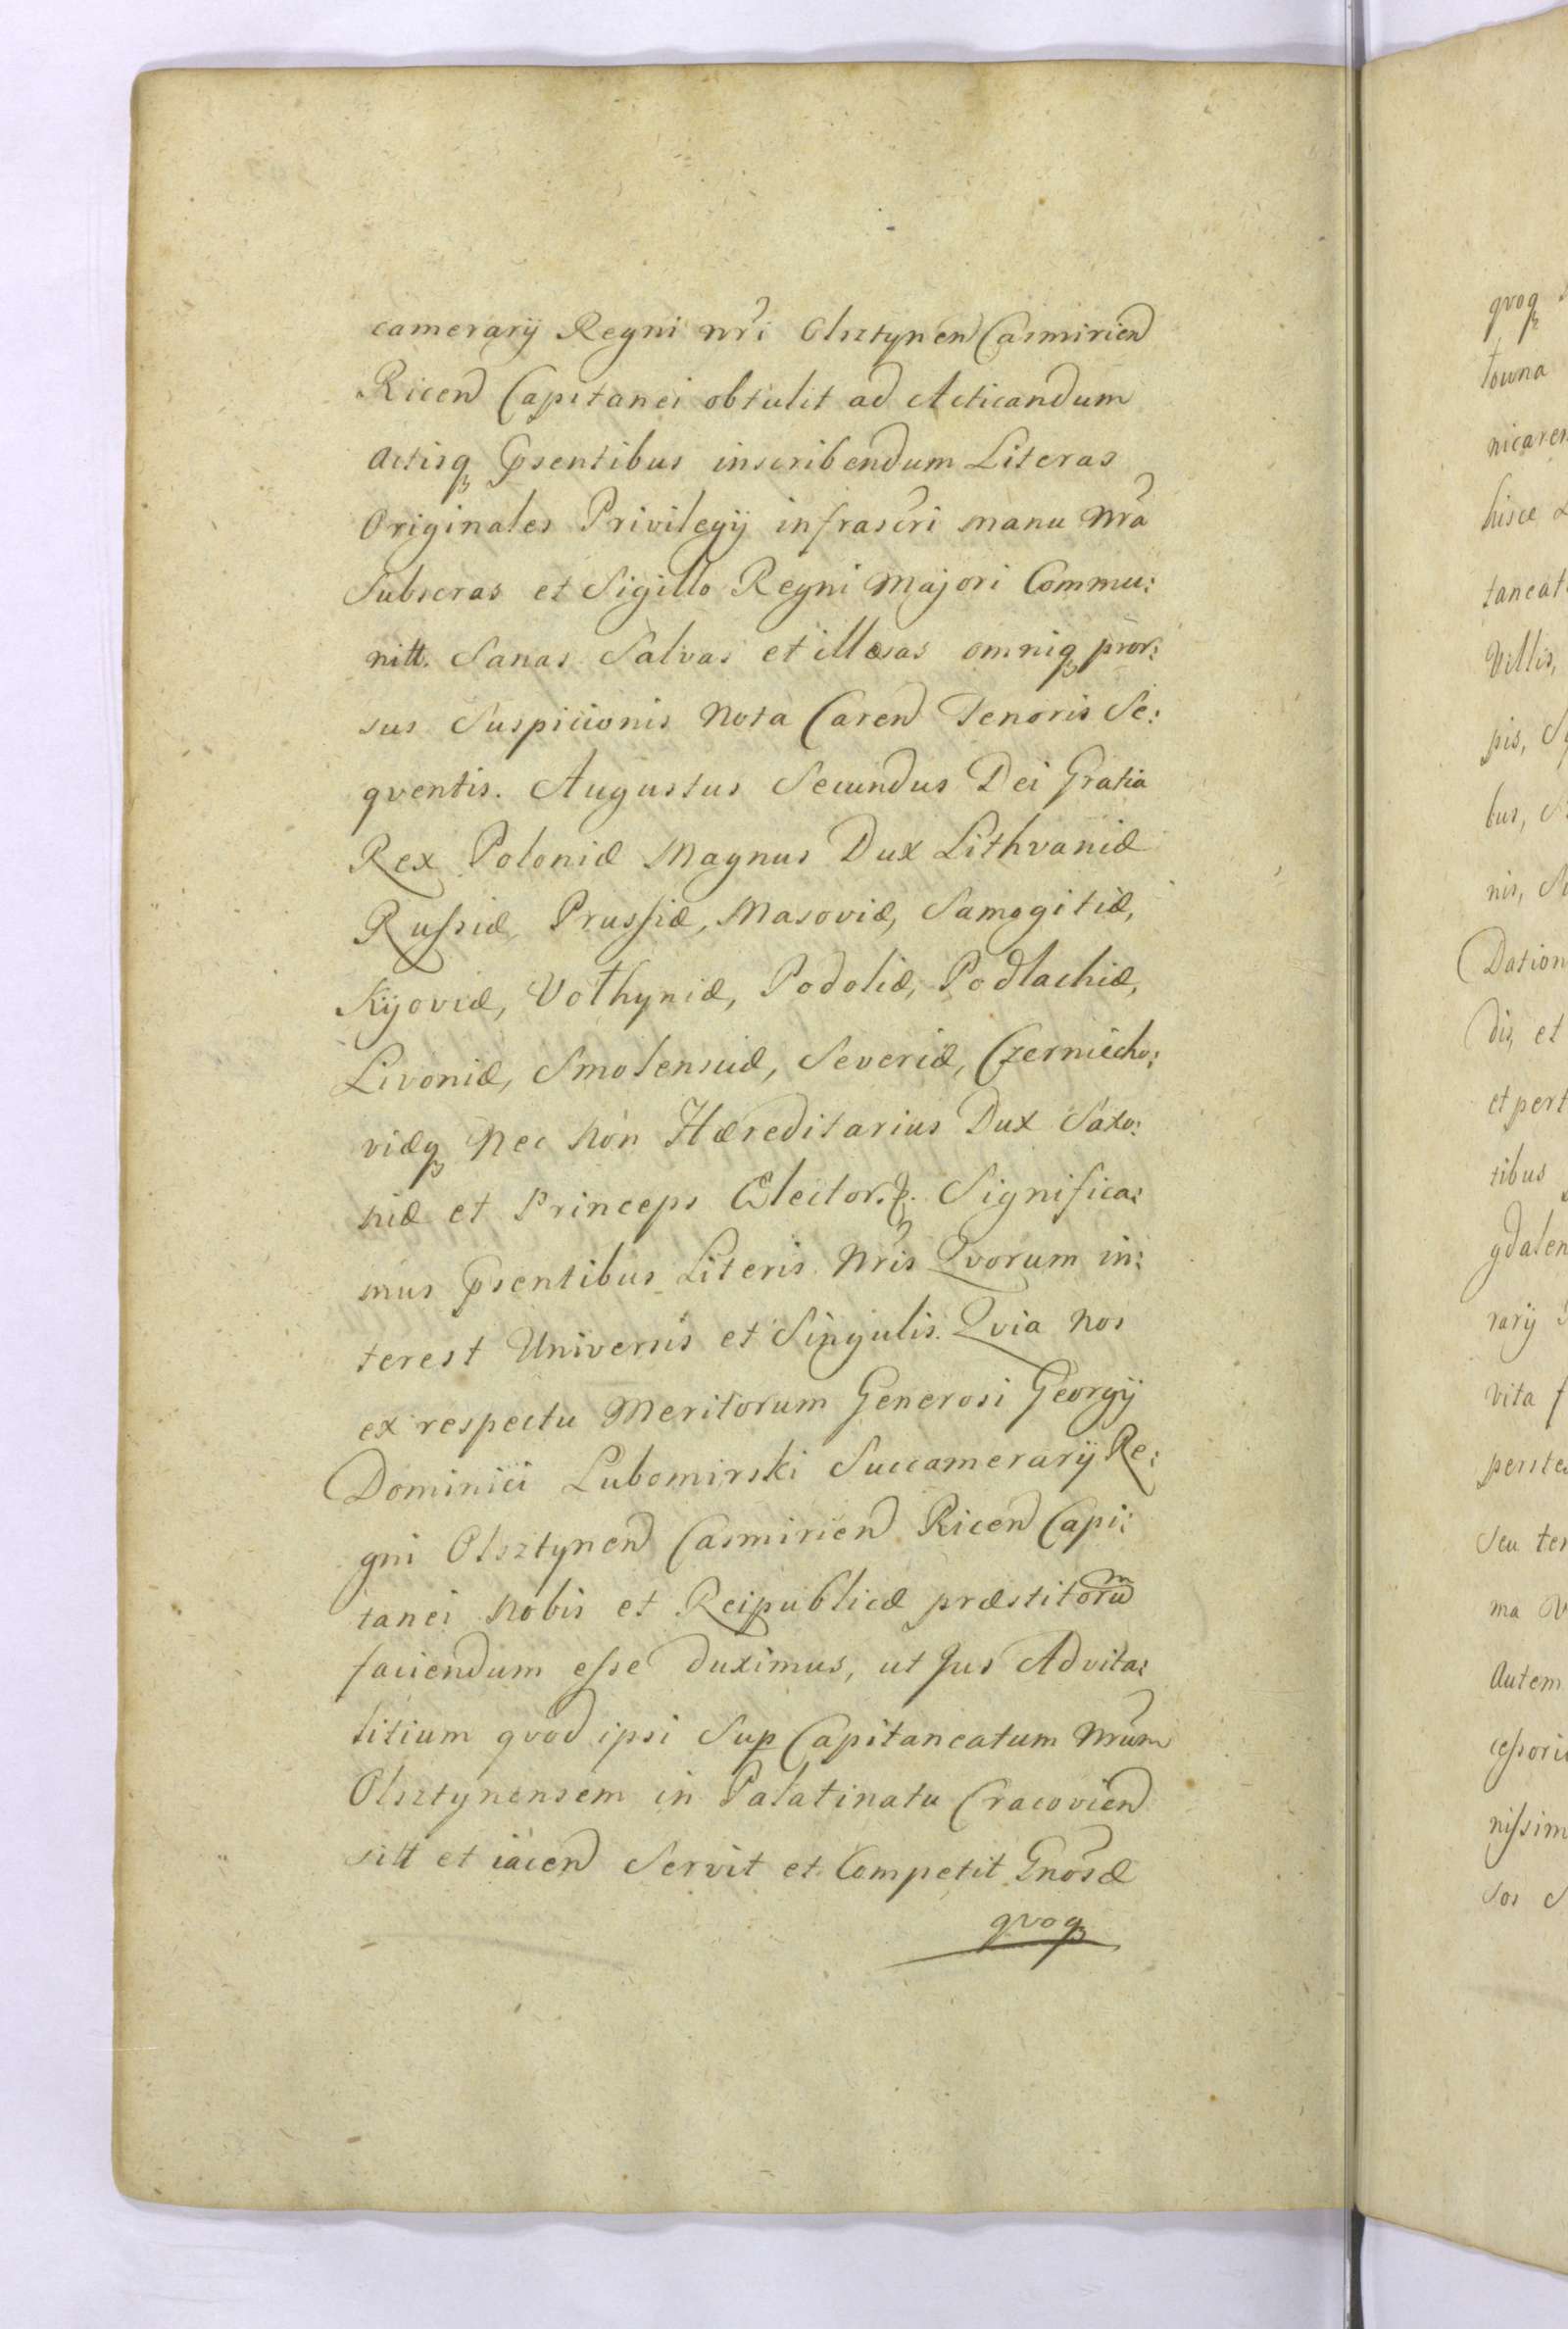 camerarÿ Regni nr̃i Olsztynen Casmirien
Ricen Capitanei obtulit ad Acticandum
Actisq₃ Psentibus inscribendum Literas
Originales Privilegÿ infrascr̃i manu nr̃a
Subscras et Sigillo Regni Majori Commu:
nitt. Sanas Salvas et illæsas omniq₃ pror:
sus Suspicionis Nota Caren Tenoris Se:
qventis. Augustus Secundus Dei Gratia
Rex Poloniæ Magnus Dux Lithvaniæ
Russiæ, Prussiæ, Masoviæ, Samogitiæ,
Kÿoviæ, Volhyniæ, Podoliæ, Podlachiæ,
Livoniæ, Smolensciæ, Severiæ, Czerniecho:
viæq₃ Nec Non Hæreditarius Dux Saxo:
niæ et Princeps Elector. &. Significa:
mus Psentibus Literis Nr̃is Qvorum in:
terest Universis et Singulis. Qvia Nos
ex respectu Meritorum Generosi Georgÿ
Dominici Lubomirski Succamerarÿ Re:
gni Olsztynen Casmirien Ricen Capi:
tanei Nobis et Reipublicæ præstitorum
faciendum esse duximus, ut Jus Advita:
litium qvod ipsi Sup Capitaneatum Nr̃um
Olsztynensem in Palatinatu Cracovien
sitt et iacen Servit et Competit Gnõsæ
qvoq₃
qvoq₃
towna
hisce
Villis,
pis,
bus,
nis,
dis, et
et pert
tibus
gdalen
rarÿ
Vita
ma
Autem